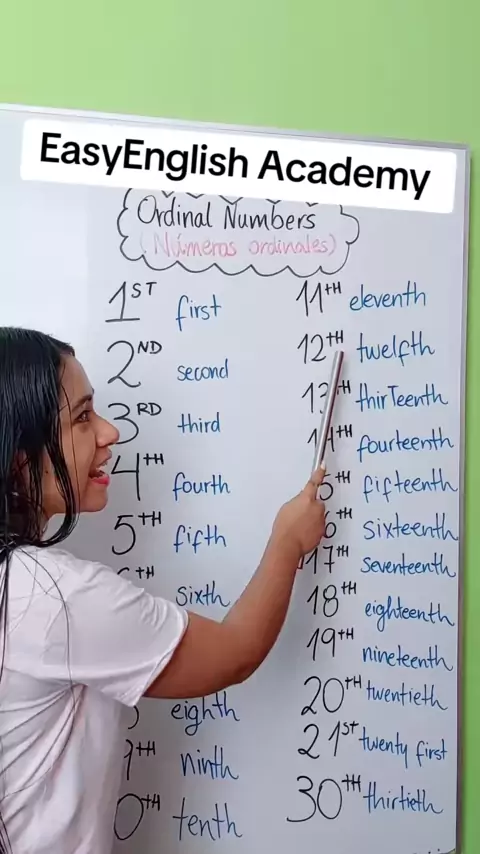 EasyEnglish Academy
Ordinal Numbers
(Números ordinales)
1ST first
2ND second
3RD third
4TH fourth
5TH fifth
TH sixth
eighth
TH ninth
0TH tenth
11TH eleventh
12TH twelfth
13TH thirTeenth
14TH fourteenth
5TH fifteenth
6TH sixteenth
17TH seventeenth
18TH eighteenth
19TH nineteenth
20TH twentieth
21ST twenty first
30TH thirtieth